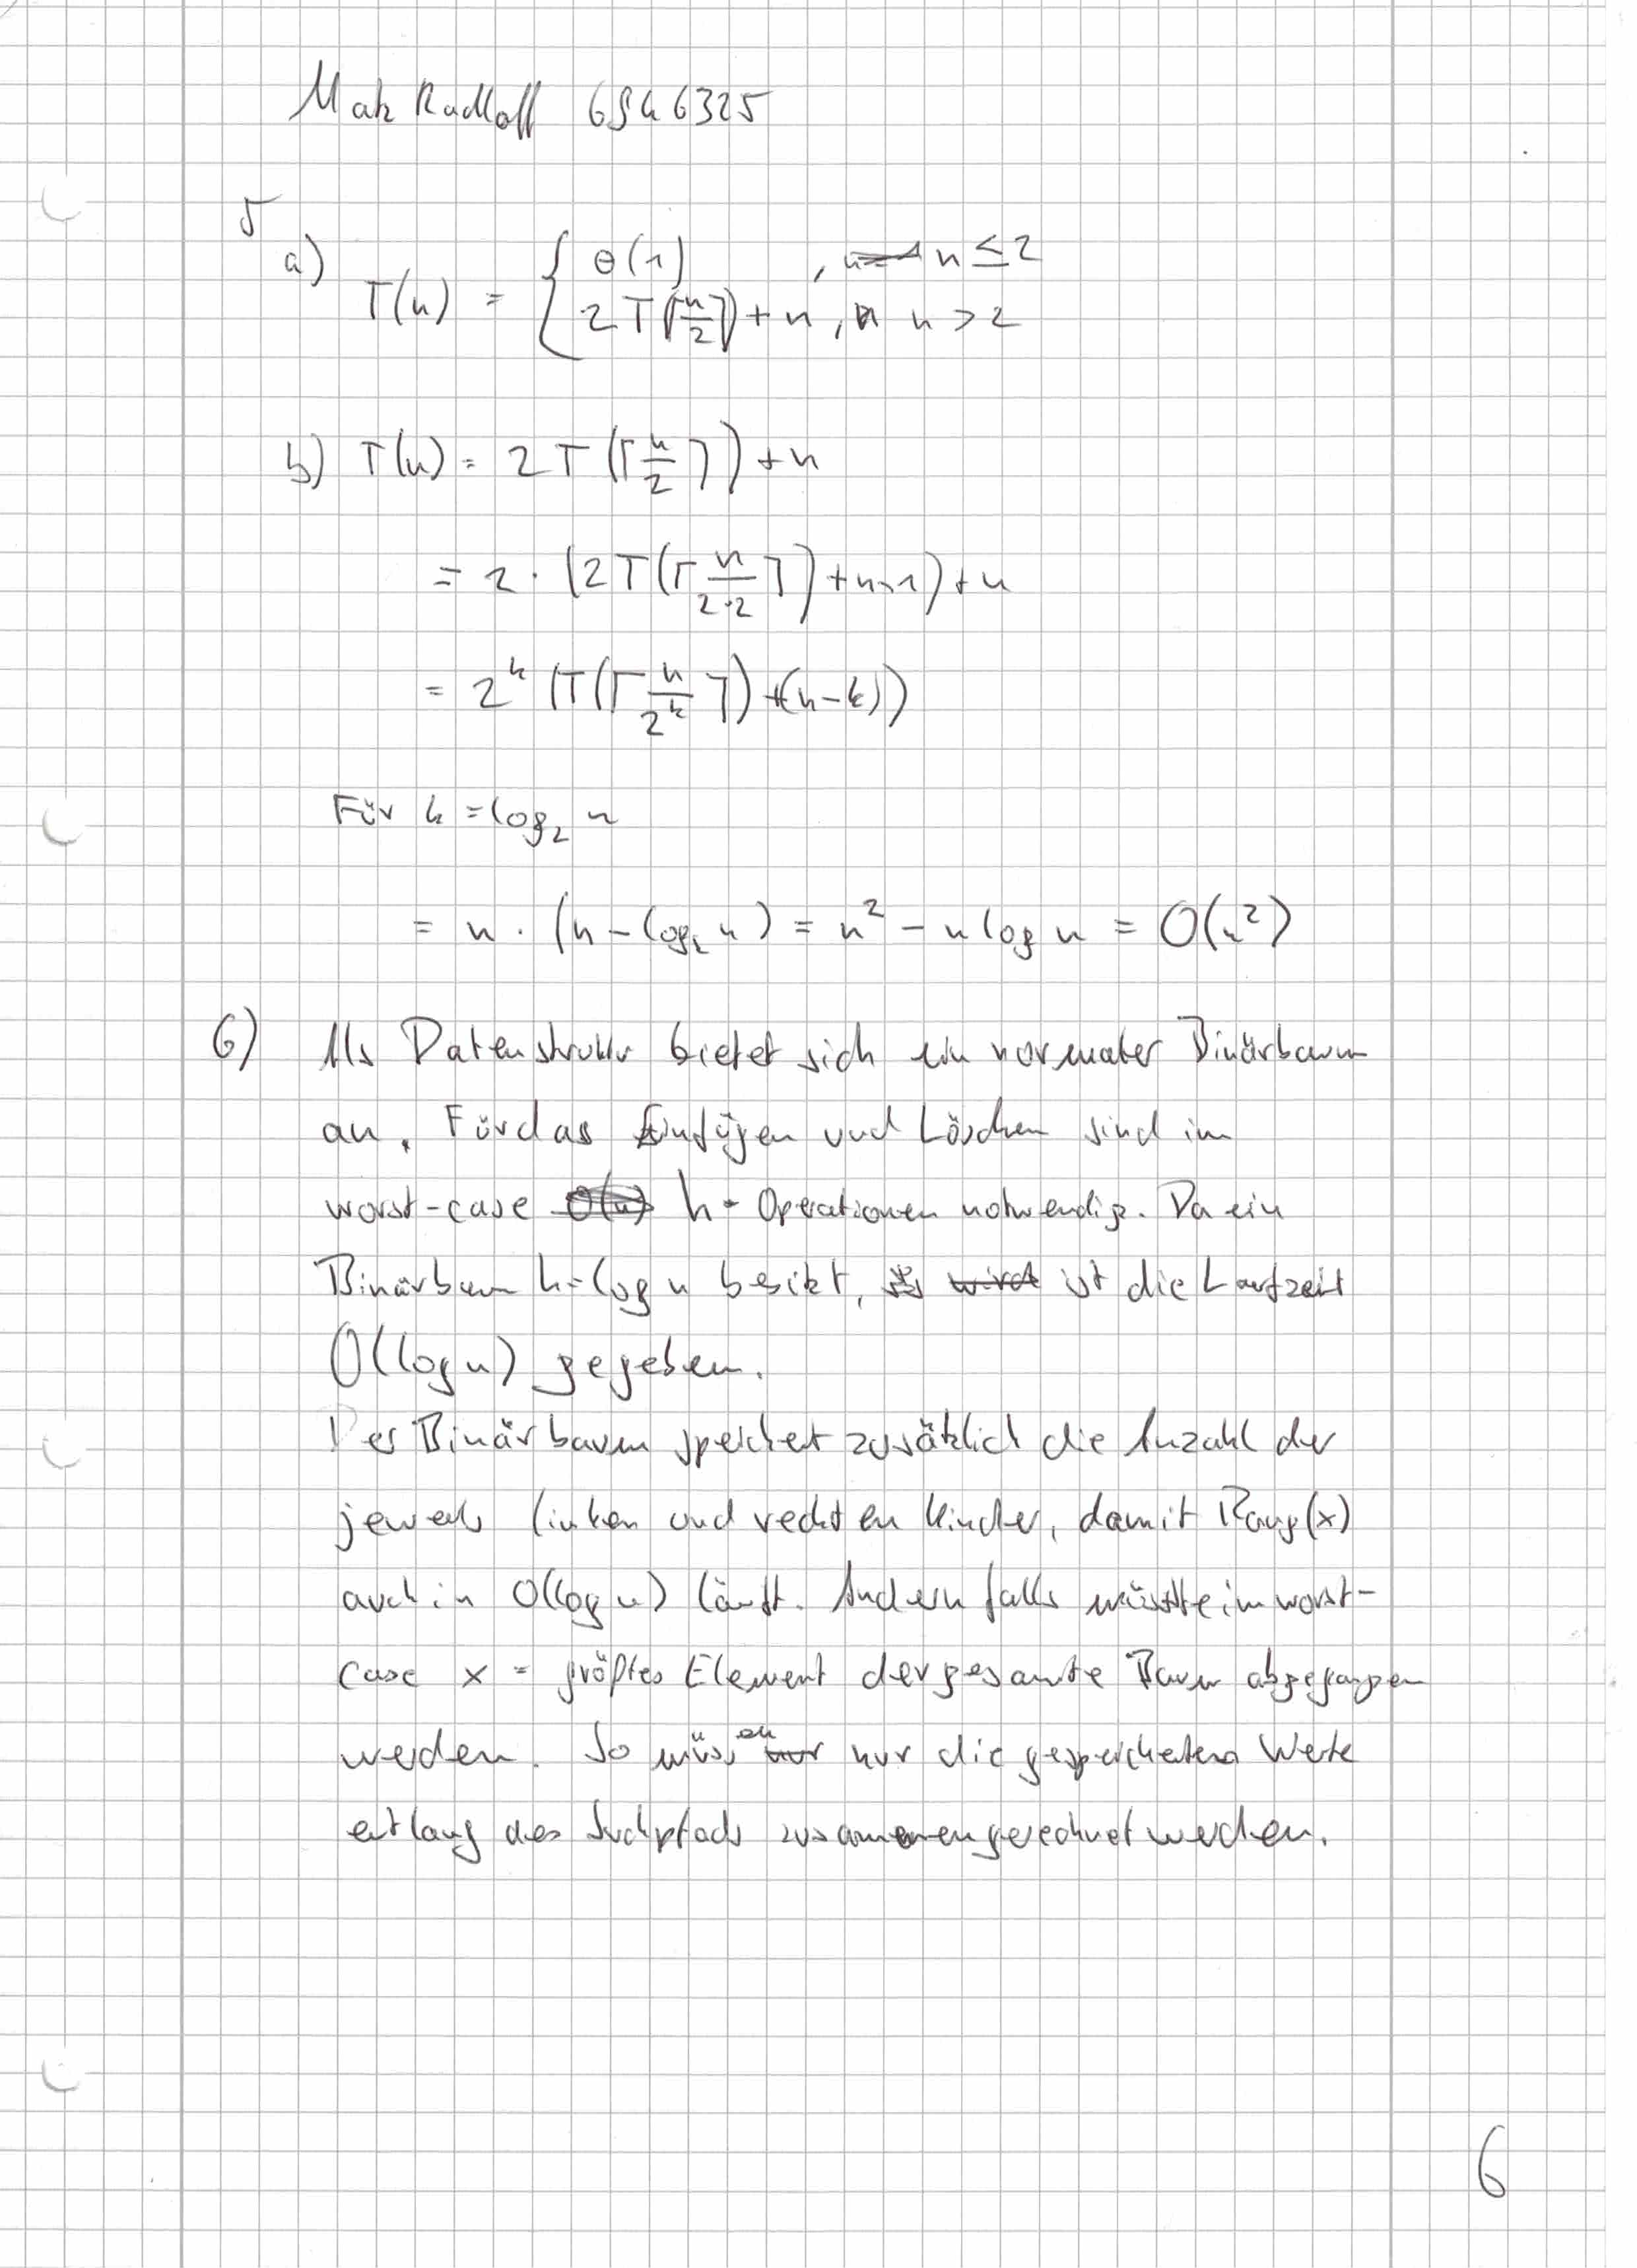 Matz Radloff 6946325
5
a) T(n) = { Θ(1) , n ≤ 2
2T(⌈n/2⌉) + n , n > 2
b) T(n) = 2T(⌈n/2⌉) + n
= 2 · (2T(⌈n/2·2⌉) + n-1) + n
= 2^k (T(⌈n/2^k⌉) + (n-k))
Für k = log₂ n
= n · (n - log₂ n) = n² - n log n = O(n²)
6) Als Datenstruktur bietet sich ein normaler Binärbaum
an. Für das Einfügen und Löschen sind im
worst-case O(n) h - Operationen notwendig. Da ein
Binärbaum h = log n besitzt, wird ist die Laufzeit
O(log n) gegeben.
Der Binärbaum speichert zusätzlich die Anzahl der
jeweils linken und rechten Kinder, damit Rang(x)
auch in O(log n) läuft. Andernfalls müsste im worst-
case x = größtes Element der gesamte Baum abgegangen
werden. So müssen nur nur die gespeicherten Werte
entlang des Suchpfads zusammengerechnet werden.
6